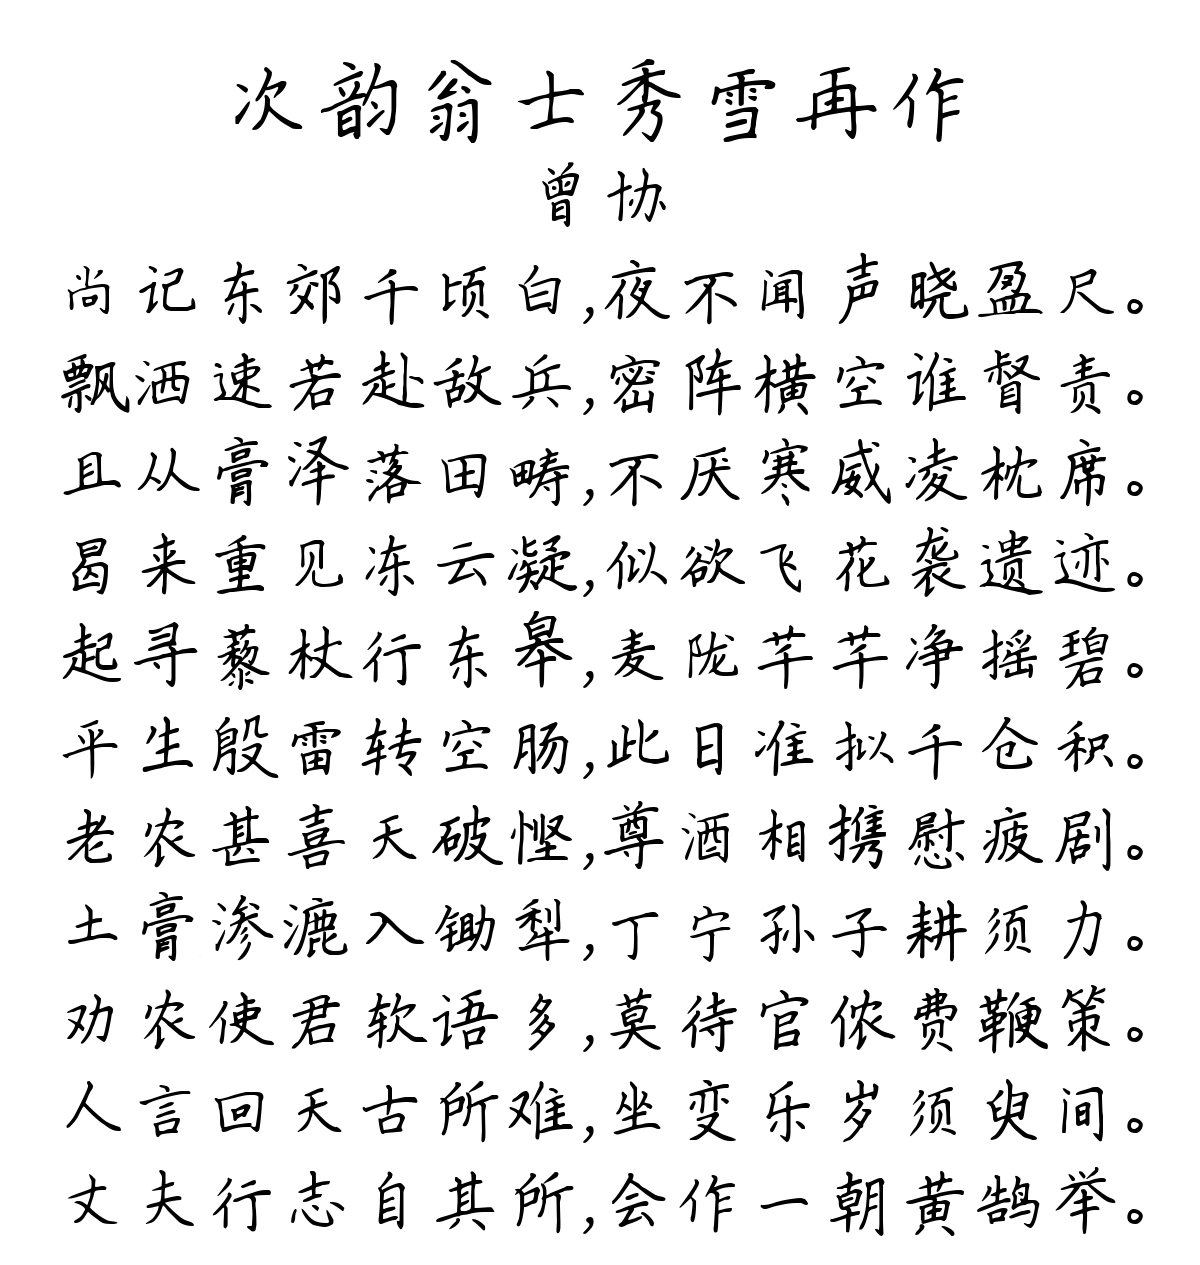 次韵翁士秀雪再作
曾协
尚记东郊千顷白,夜不闻声晓盈尺。
飘洒速若赴敌兵,密阵横空谁督责。
且从膏泽落田畴,不厌寒威凌枕席。
曷来重见冻云凝,似欲飞花袭遗迹。
起寻藜杖行东皋,麦陇芊芊净摇碧。
平生殷雷转空肠,此日准拟千仓积。
老农甚喜天破悭,尊酒相携慰疲剧。
土膏渗漉入锄犁,丁宁孙子耕须力。
劝农使君软语多,莫待官侬费鞭策。
人言回天古所难,坐变乐岁须臾间。
丈夫行志自其所,会作一朝黄鹄举。